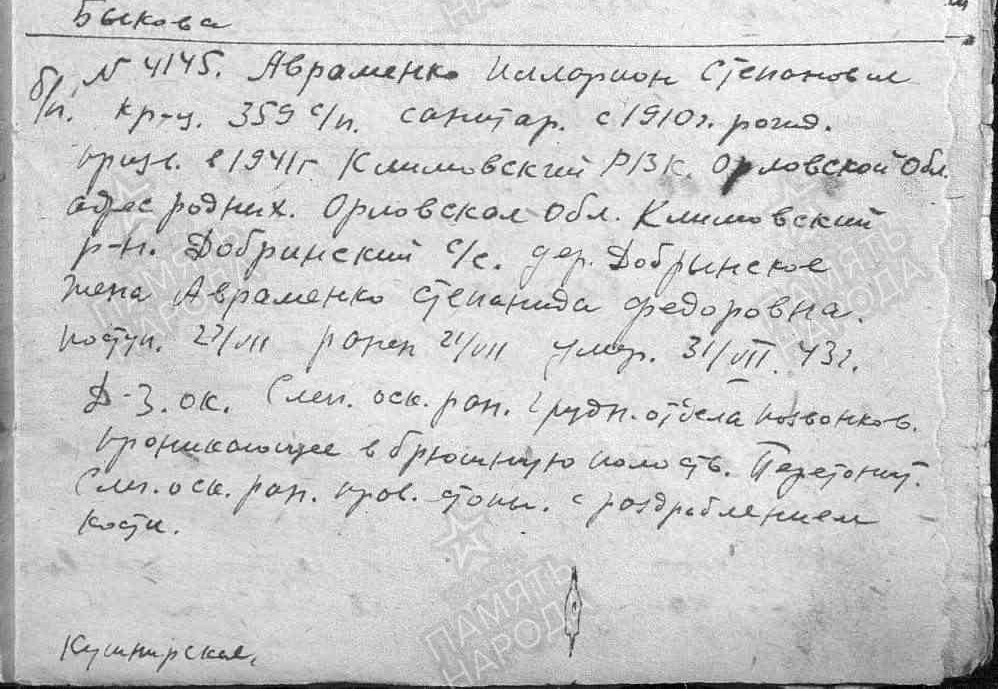 Быкова
б/п. N 4145. Авраменко Илларион Степанович
кр-ц. 359 с/п. санитар. с 1910 г. рожд.
призв. в 1941 г Климовский РВК. Орловской Обл.
адрес родных. Орловская Обл. Климовский
р-н. Добринский с/с. дер. Добрынское
жена Авраменко Степанида Федоровна.
поступ. 27/VII ранен 21/VII умер. 31/VII. 43 г.
Д-з. ок. Слеп. оск. ран. грудн. отдела позвонков.
проникающее в брюшную полость. Перетонит.
Слеп. оск. ран. прав. стопы. с раздроблением
кости.
Кушнирская,
ПАМЯТЬ НАРОДА